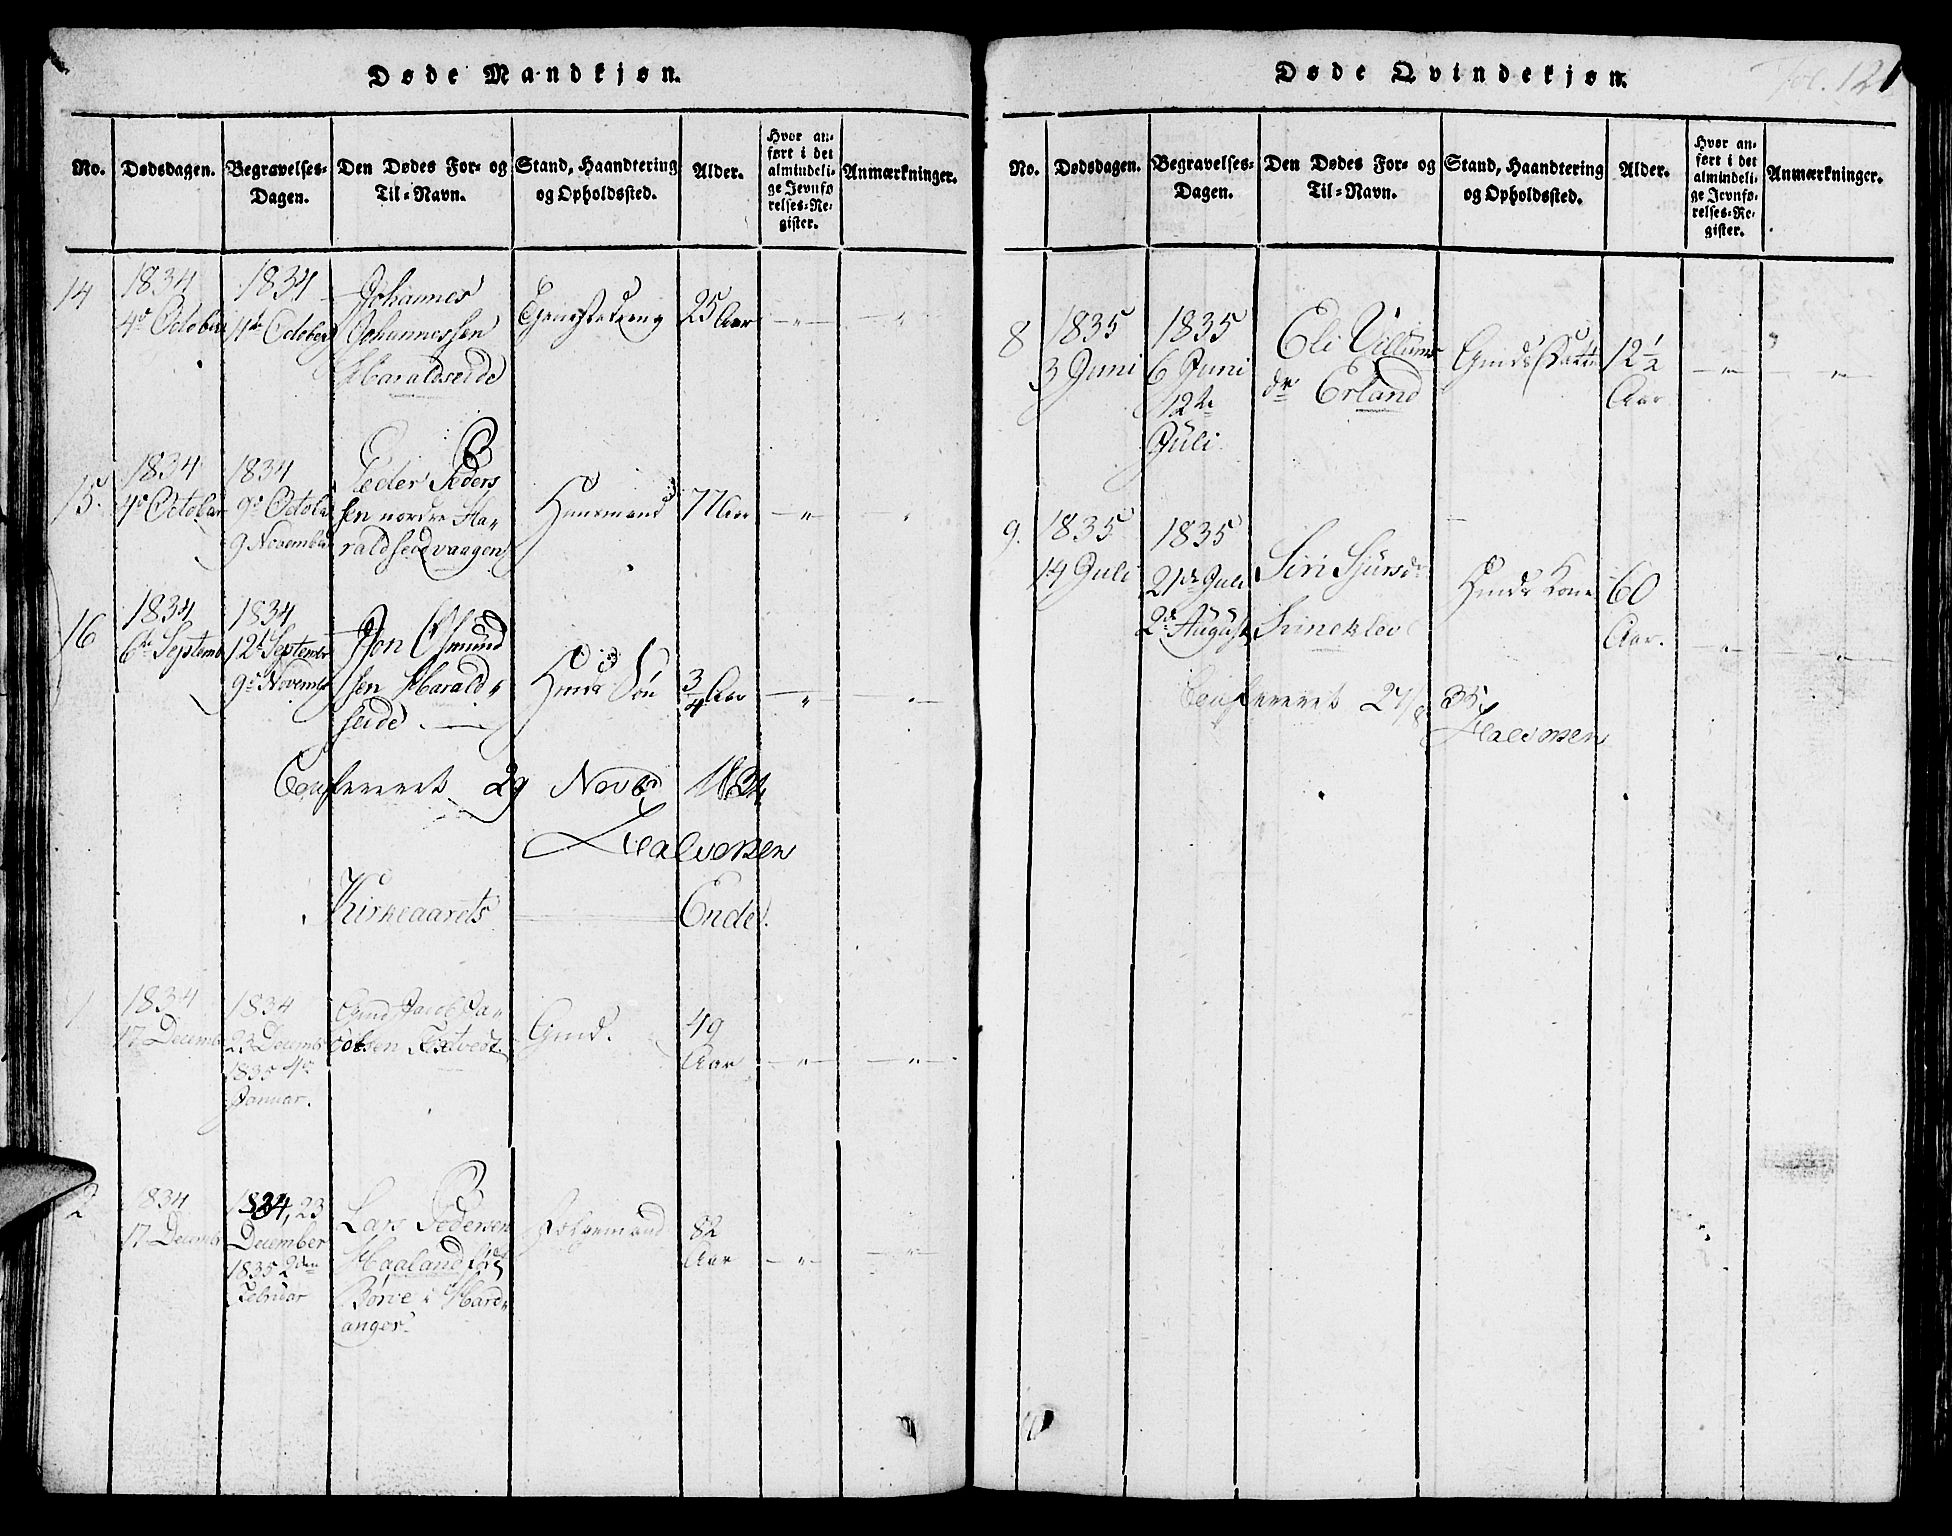 Døde Mandkjøn.
No.
Dødsdagen.
Begravelses-
Dagen.
Den Dødes For- og
Til-Navn.
Stand, Haandtering
og Opholdssted.
Alder.
Hvor an-
ført i det
almindeli-
ge Jevnfø
relses-Re-
gister.
Anmærkninger.
14
1834
4de October
1834
4de October
Johannes
Johannessen
Haraldseide
25 Aar
15.
1834
4de October
1834
9de October
9 November
Peder Peders
sen nordre Ha„
raldseidvaagen
Huusmand
77 Aar
16
1834
6te Septemb
1834
12te September
9de November
Jon Osmund
sen Harald„
seide.
Huusm Søn
3/4 Aar
Confereret 29 Novbr 1834
Halvorsen
Kirkeaarets Ende.
1
1834
17 December
1834
23 December
1835 4de
Januar.
Jacob Ja„
cobsen
Gmd.
49
Aar
2
1834
17 December
1834, 23
December
1835 2den
Februar
Lars Pedersen
Haaland
Børve i Hard„
anger.
82
Aar
Døde Qvindekjøn.
Fol. 121
No.
Dødsdagen.
Begravelses-
Dagen.
Den Dødes For- og
Til-Navn.
Stand, Haandtering
og Opholdssted.
Alder.
Hvor an-
ført i det
almindeli-
ge Jevnfø-
relses-Re-
gister.
Anmærkninger.
8
1835
3 Juni
1835
6 Juni
12te
Juli
Eli Villums
dr Erland
Gmds Datter
12 1/2
Aar
9.
1835
14 Juli
1835
21de Juli
2de August
Siri Sjursdr
Svineklev
Huusm Kone
60
Aar.
Confereret 27/8 35.
Halvorsen